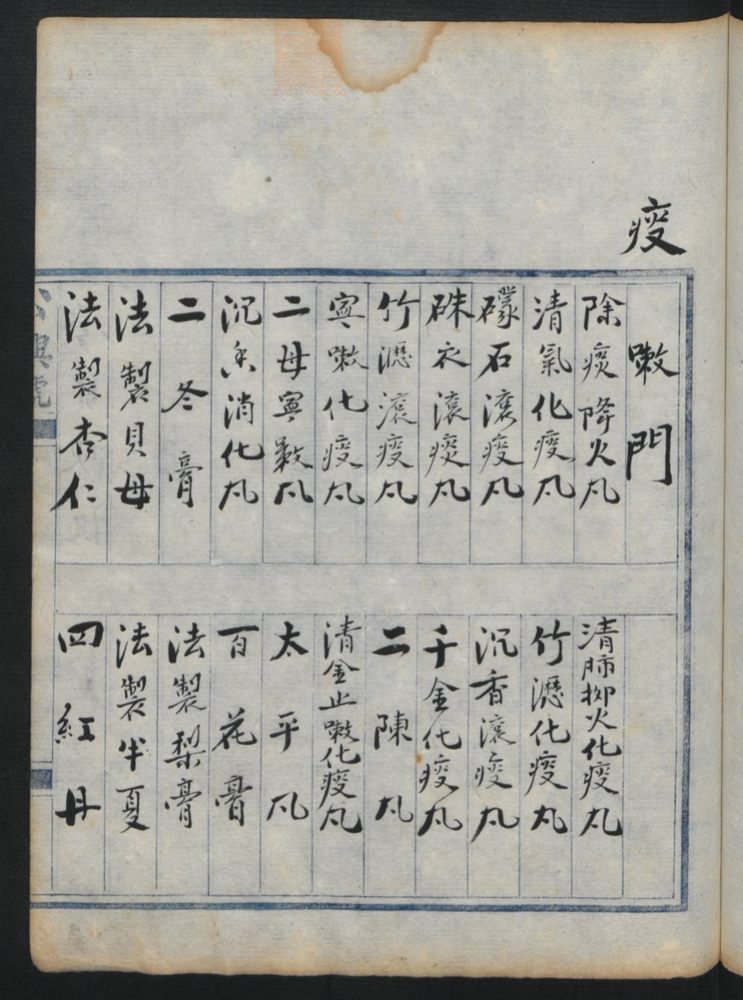 痰
嗽門
除痰降火凡
清氣化痰凡
礞石滾痰凡
硃衣滾痰凡
竹瀝滾痰凡
寧嗽化痰凡
二母寧嗽凡
沉香消化凡
二冬膏
法製貝母
法製杏仁
清肺抑火化痰凡
竹瀝化痰丸
沉香滾痰凡
千金化痰凡
二陳丸
清金止嗽化痰凡
太平凡
百花膏
法製梨膏
法製半夏
四紅丹